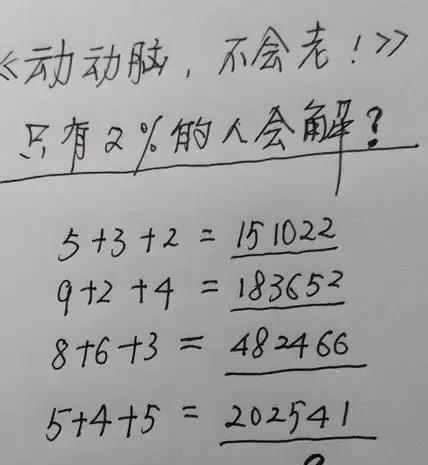 《动动脑，不会老！》
只有2%的人会解？
5+3+2 = 151022
9+2+4 = 183652
8+6+3 = 482466
5+4+5 = 202541
?